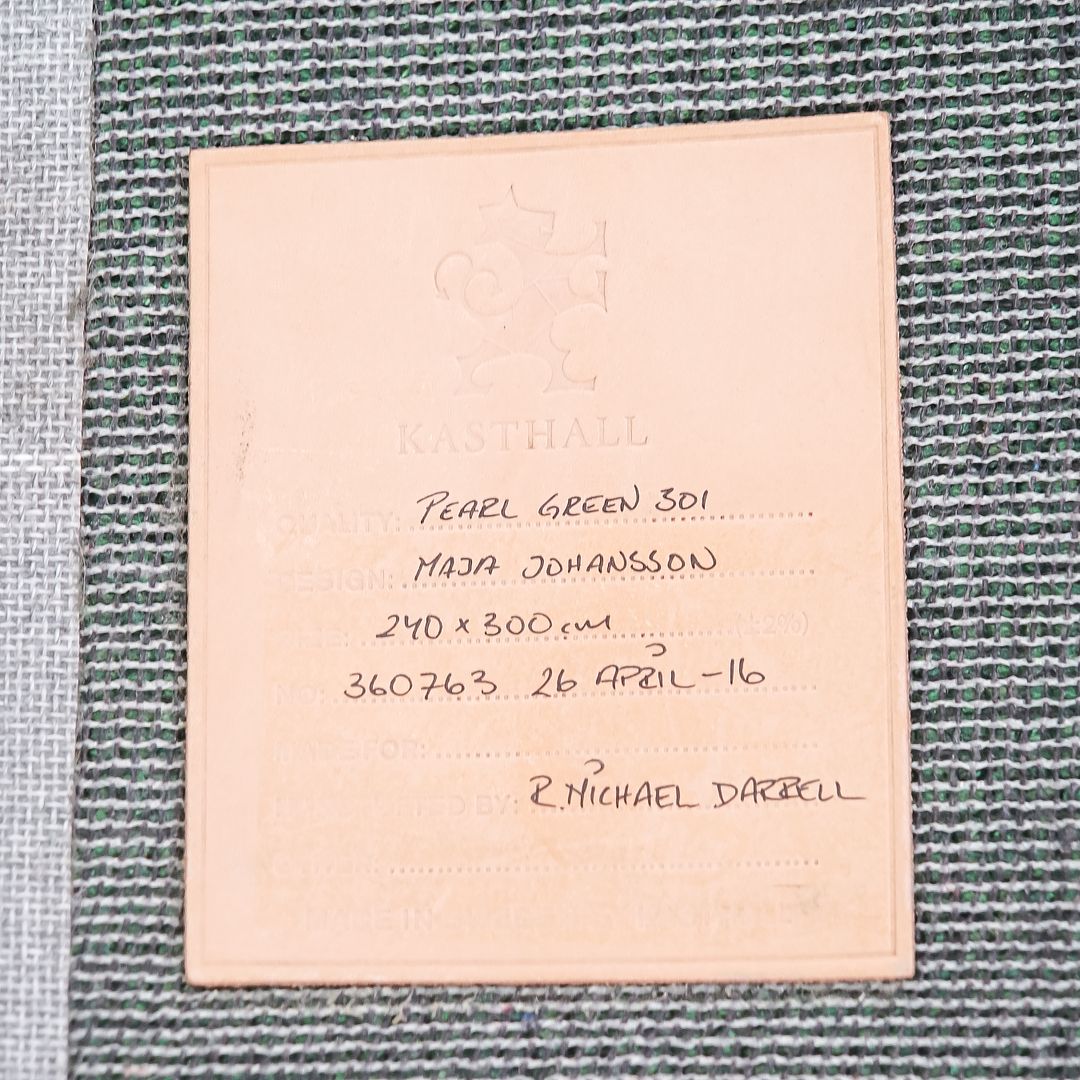 KASTHALL
QUALITY: PEARL GREEN 301
DESIGN: MAJA JOHANSSON
240 x 300 cm (±2%)
NO: 360763 26 APRIL -16
MADE FOR:
BY: R. MICHAEL DARRELL
MADE IN